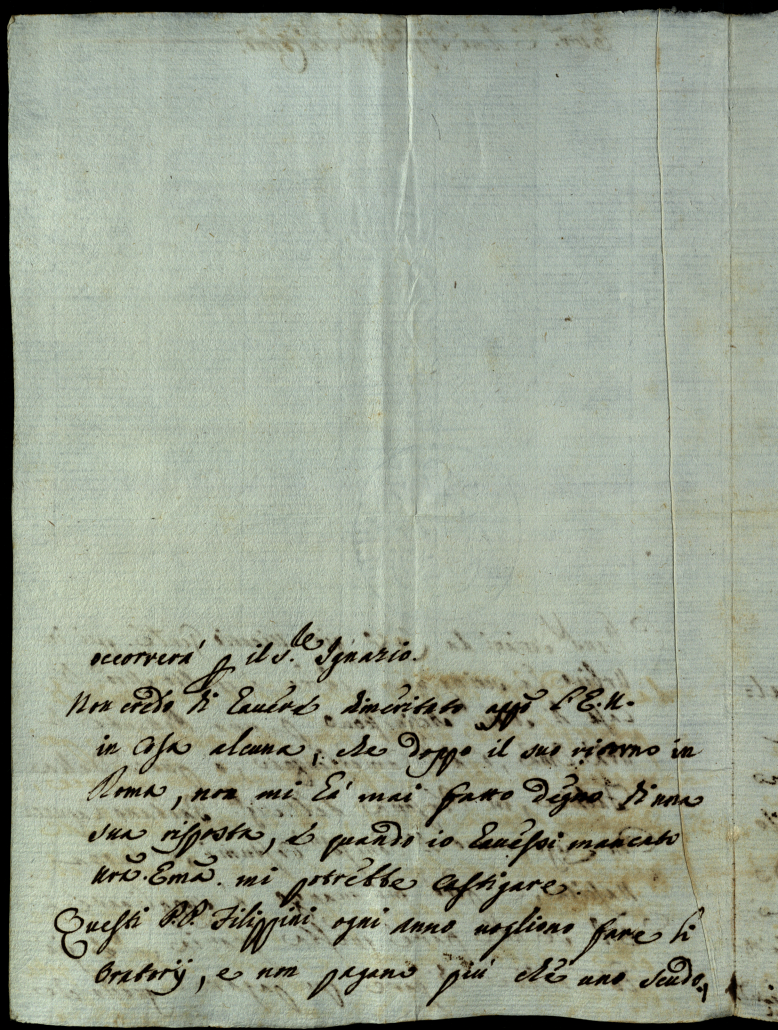 occorrerà p il S.le Ignazio.
Non credo di hauere dimeritato appo l'E.V.
in cosa alcuna, che doppo il suo ritorno in
Roma, non mi hà mai fatto degno di una
sua risposta, e quando io hauessi mancato
Vrã. Emã. mi potrebbe castigare.
Questi P.P. Filippini ogni anno uogliono fare li
Oratorij, e non pagano più che uno scudo,